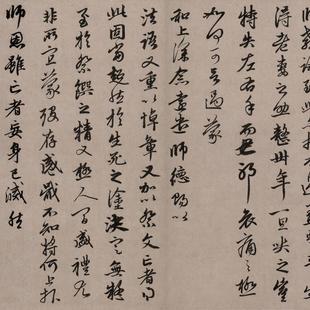 得老妻之助整卅年一旦哭之豈
特失左右手而已耶哀痛之極
如何可言過蒙
和上深念遠遣師德賜以
法語又重以悼章又加以祭文亡者得
此固當超然於生死之塗決定無疑
至於祭饌之精又極人間盛禮尤
非所宜蒙歿存感戢不知將何上報
師恩雖亡者無身已滅然